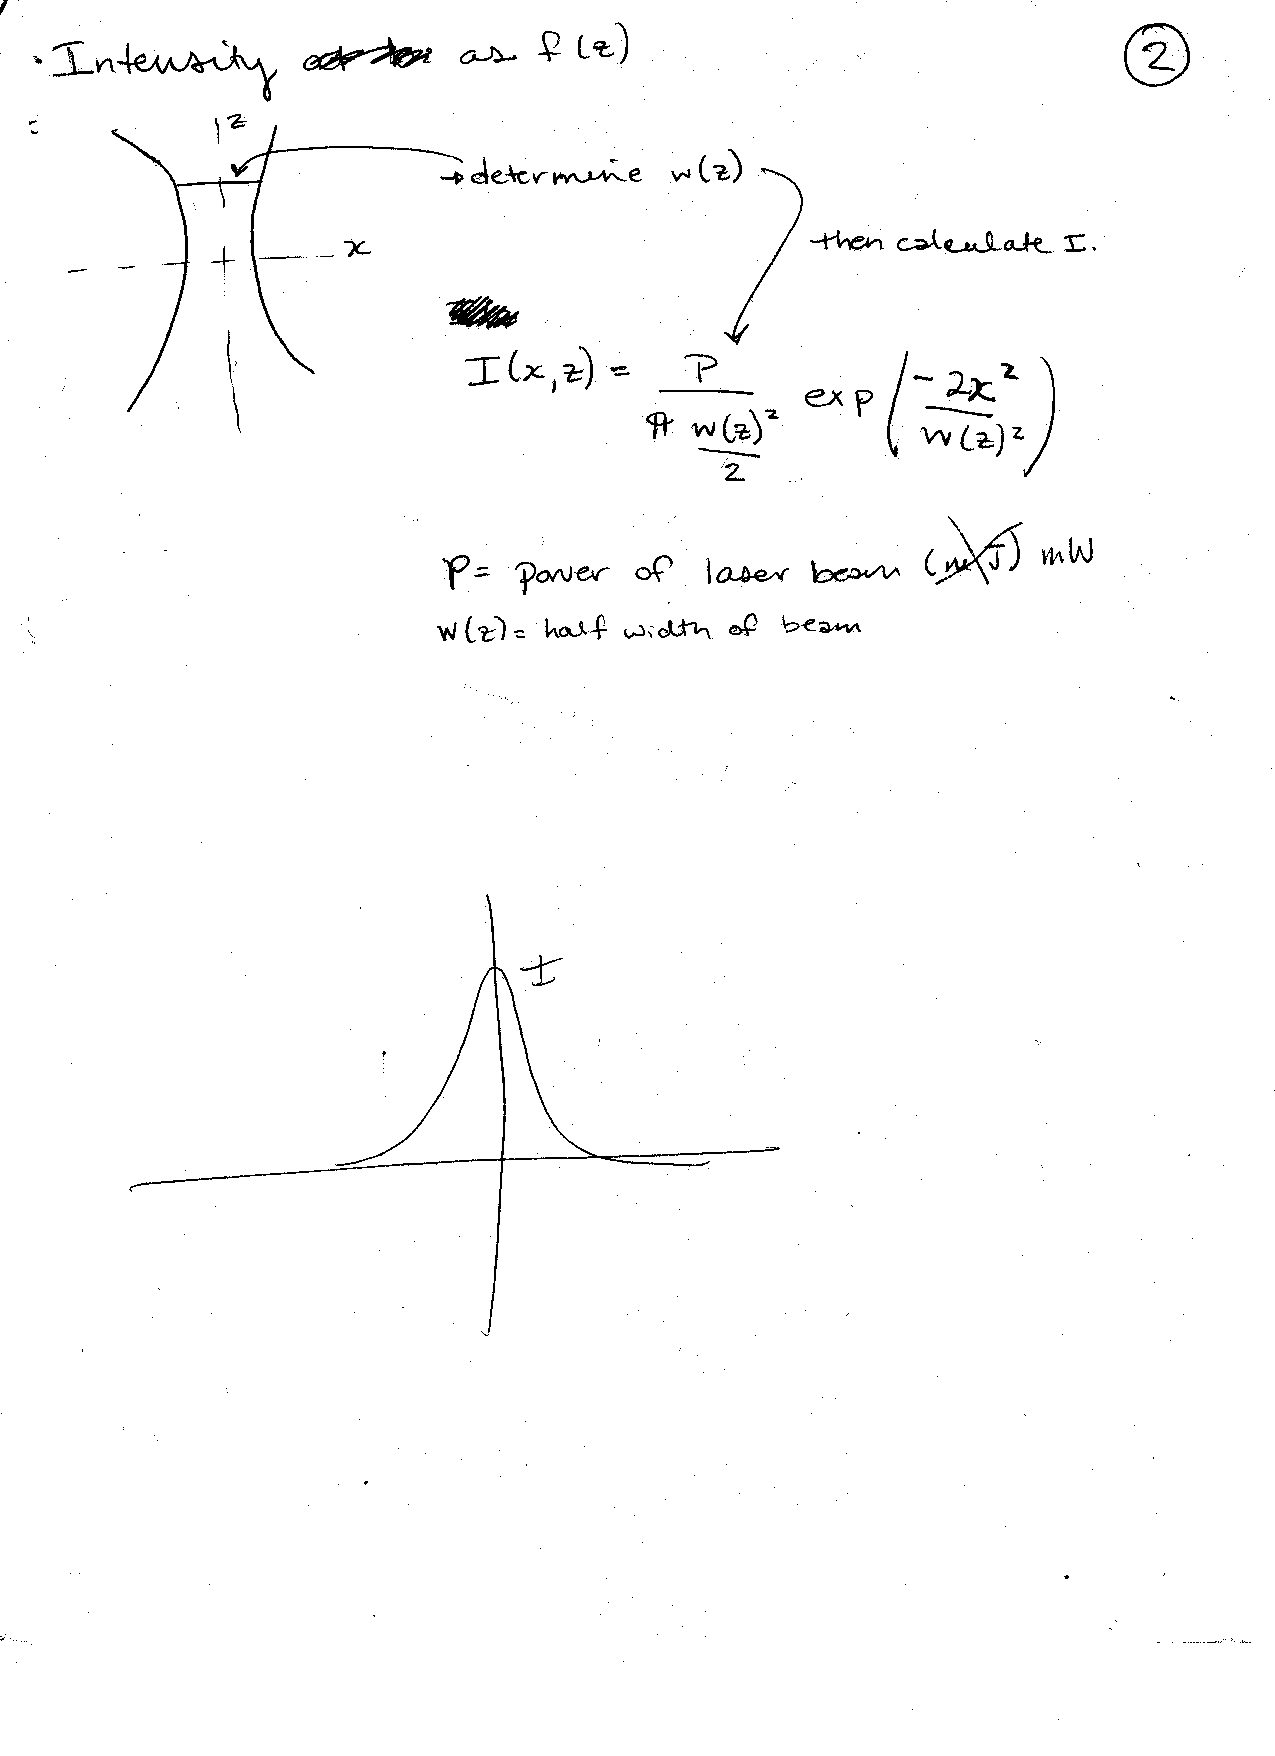 · Intensity as f(z)
2
z
→ determine w(z)
then calculate I.
x
I(x,z) = P / (π w(z)² / 2) exp(-2x² / w(z)²)
P = power of laser beam (mJ) mW
w(z) = half width of beam
I